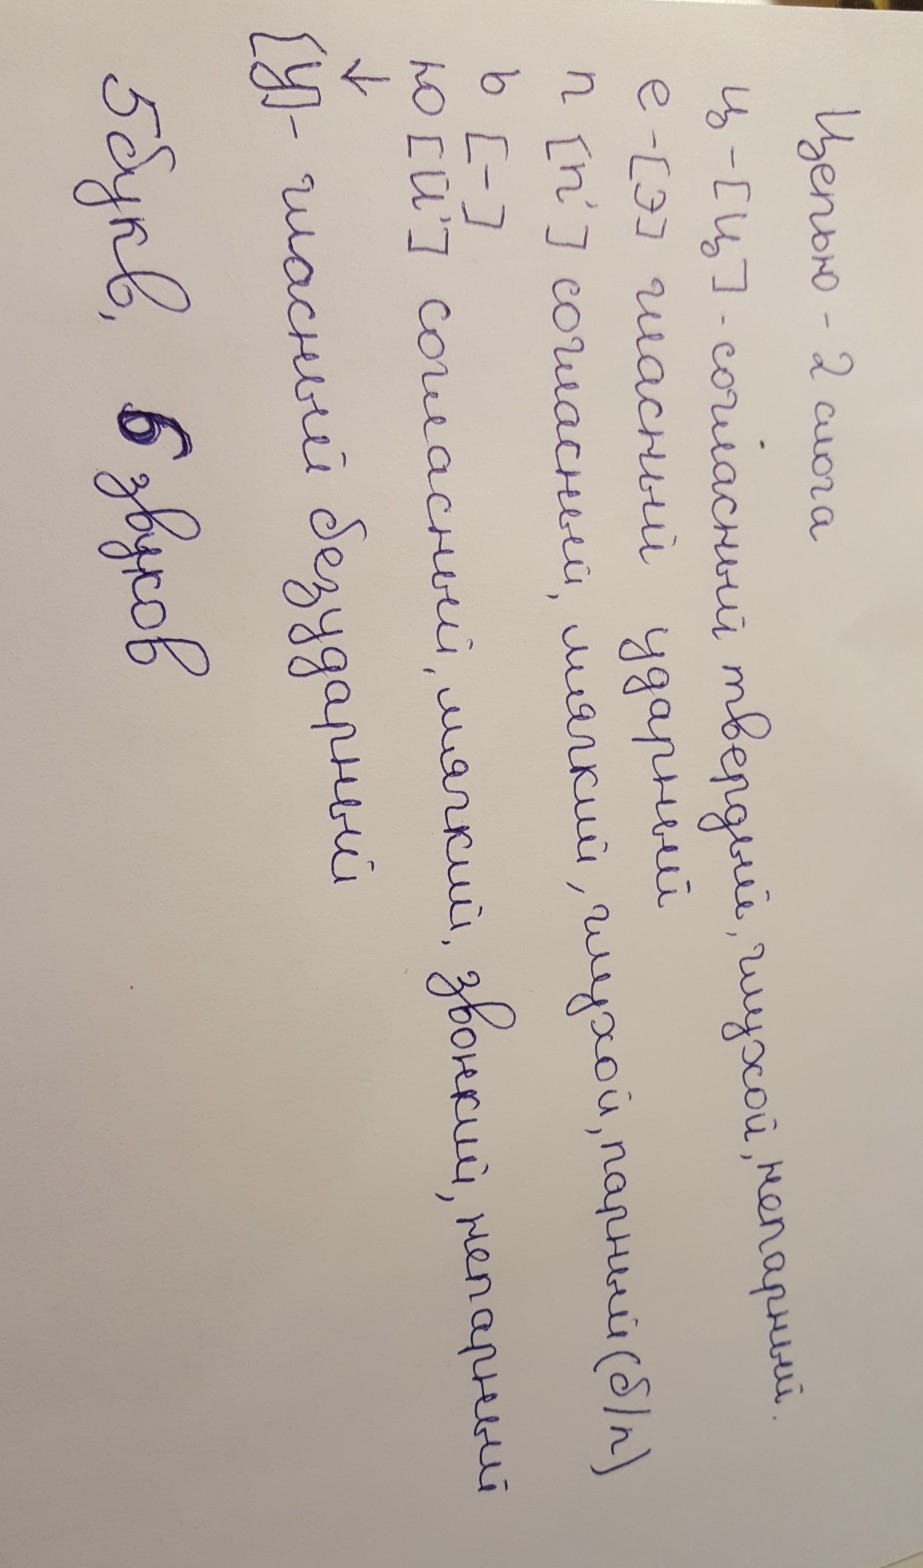 Цепью - 2 слога
ц - [ц] - согласный твердый, глухой, непарный.
е - [э] гласный ударный
п [п'] согласный, мягкий, глухой, парный (б/п)
ь [-]
ю [й'] согласный, мягкий, звонкий, непарный
↓
[у] - гласный безударный
5 букв, 6 звуков